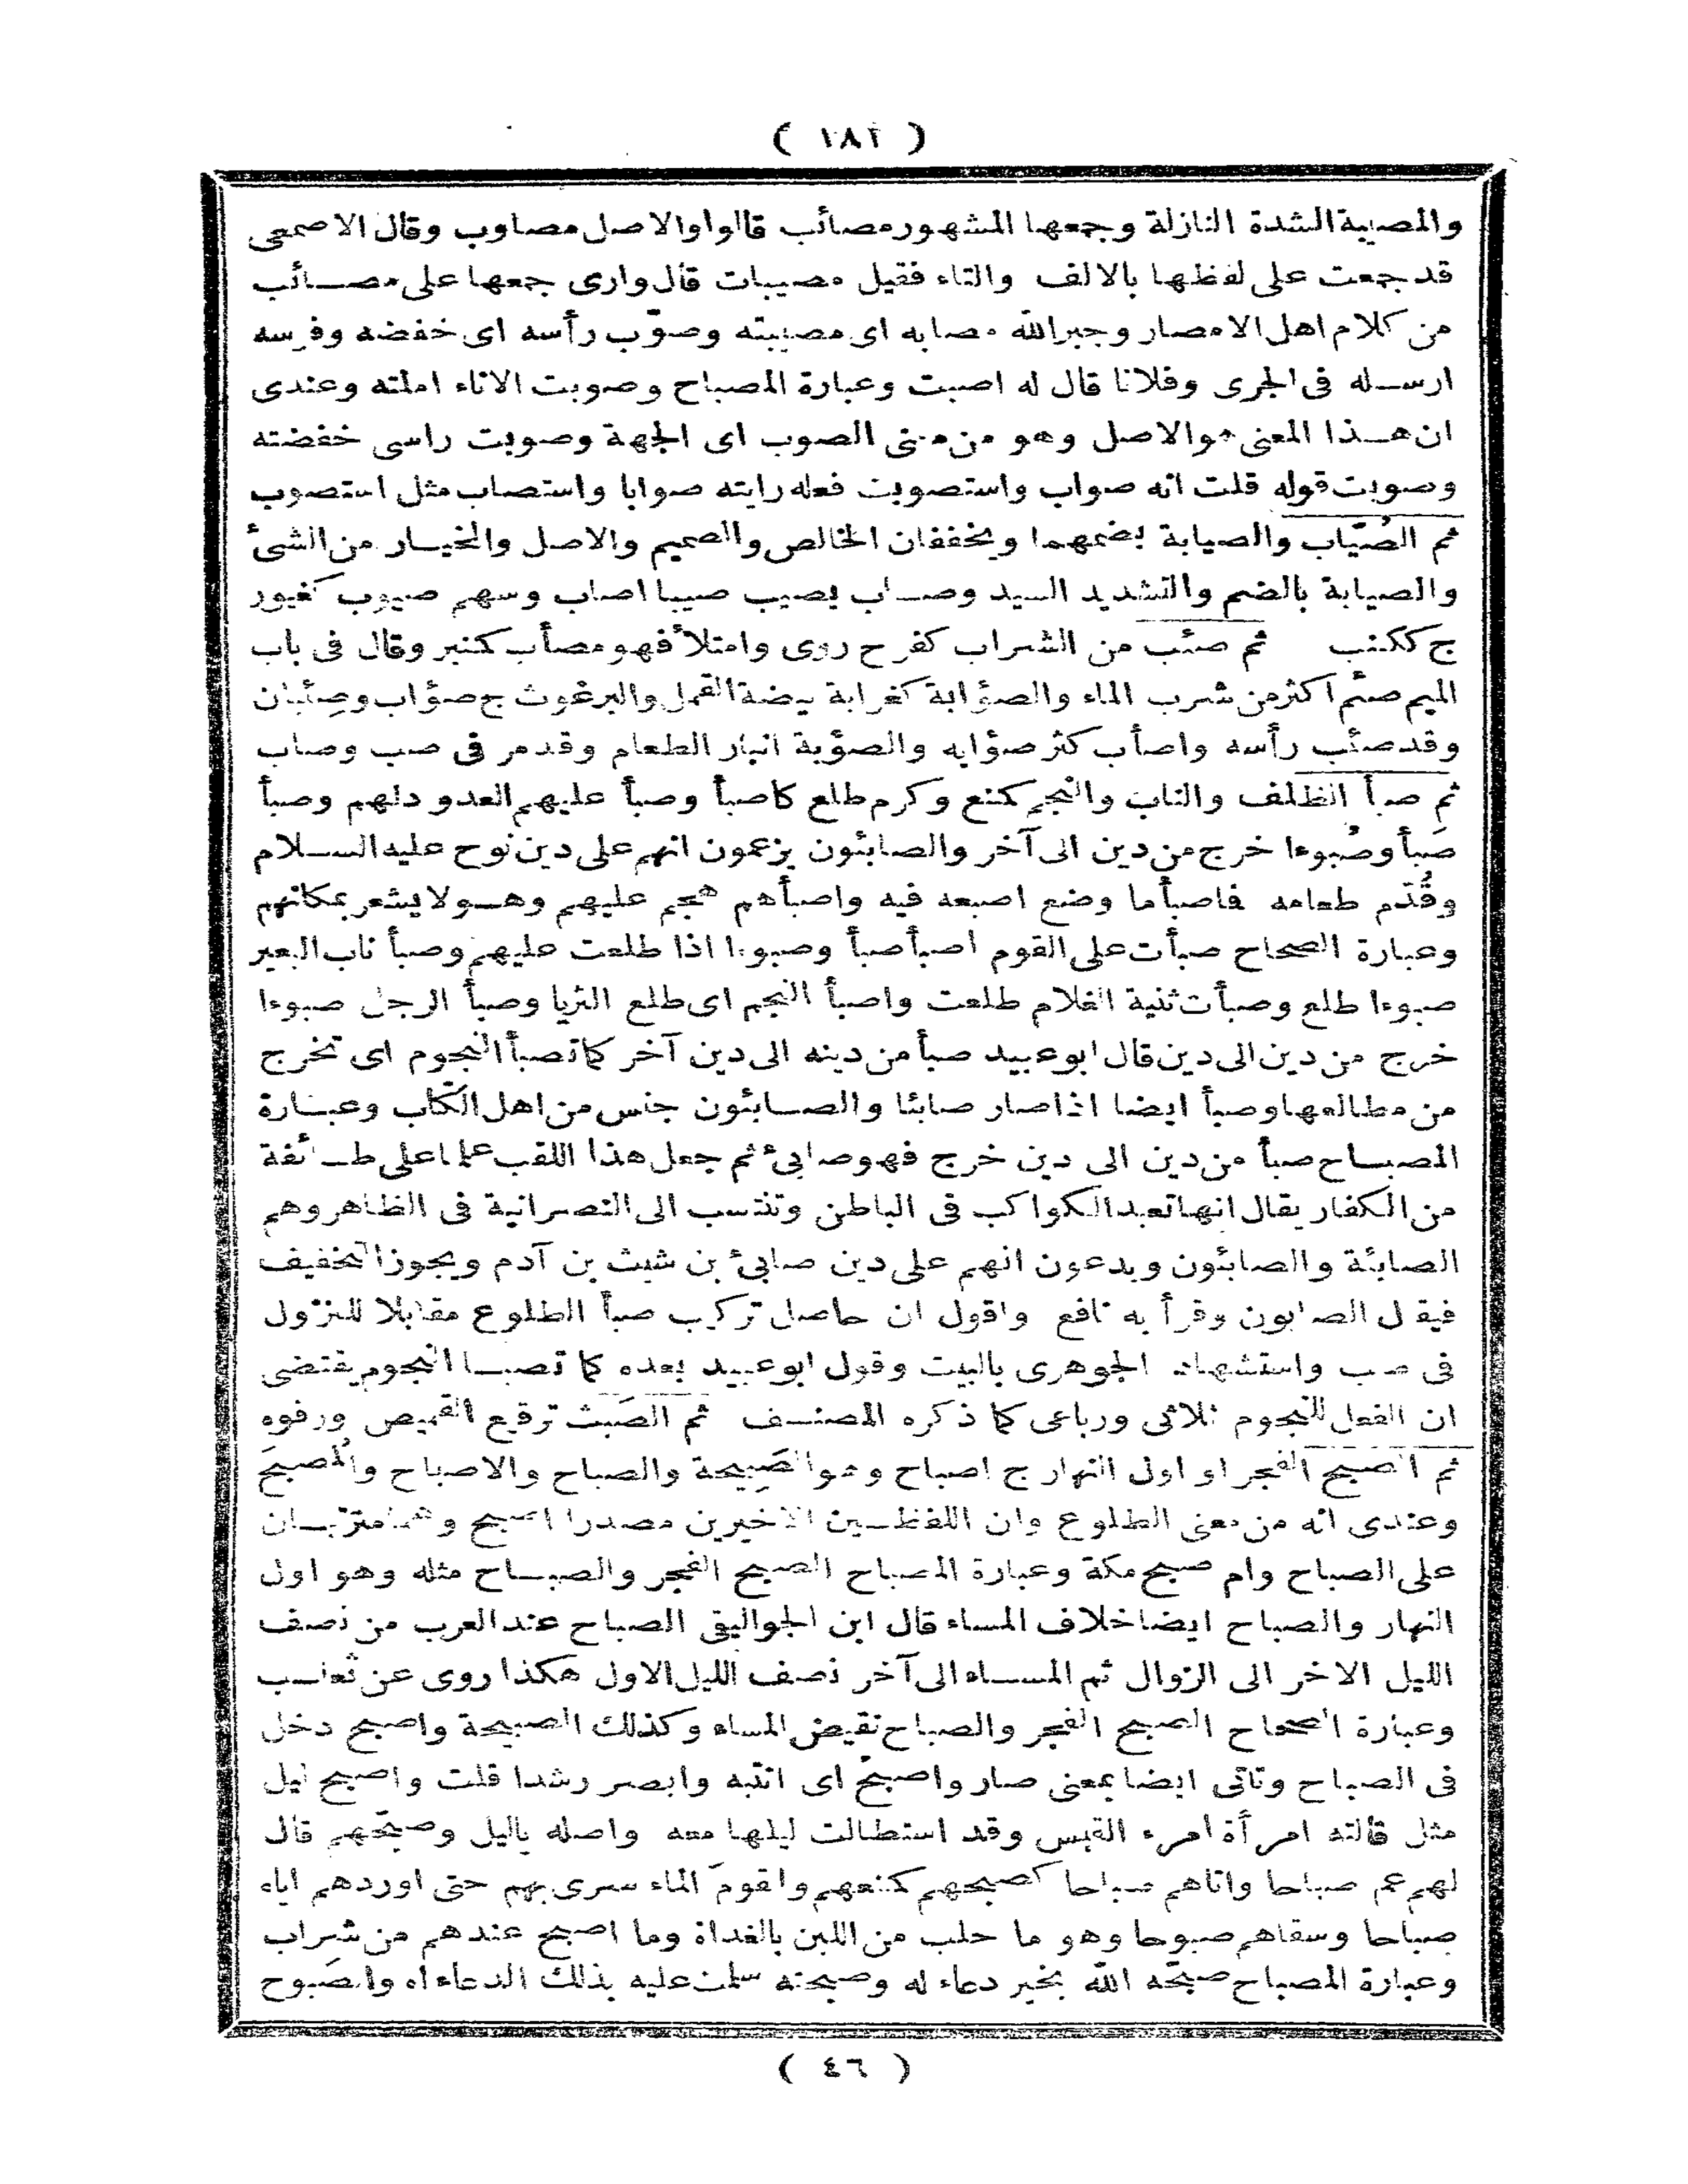 ( ١٨٢ )
والمصيبة الشدة النازلة وجمعها المشهور مصائب قالوا والاصل مصاوب وقال الاصمعى
قد جمعت على لفظها بالالف والتاء فقيل مصيبات قال وارى جمعها على مصائب
من كلام اهل الامصار وجبر الله مصابه اى مصيبته وصوّب رأسه اى خفضه وفرسه
ارسله فى الجرى وفلانا قال له اصبت وعبارة المصباح وصوبت الاناء املته وعندى
ان هذا المعنى هو الاصل وهو من معنى الصوب اى الجهة وصوبت راسى خفضته
وصوبت قوله قلت انه صواب واستصوبت فعله رايته صوابا واستصاب مثل استصوب
ثم الصُيّاب والصيابة بضمهما ويخففان الخالص والصميم والاصل والخيار من الشئ
والصيابة بالضم والتشديد السيد وصاب يصيب صيبا اصاب وسهم صيوب كغيور
ج ككتب ثم صئب من الشراب كفرح روى وامتلأ فهو مصأب كمنبر وقال فى باب
الميم صئم اكثر من شرب الماء والصؤابة كغرابة بيضة القمل والبرغوث ج صؤاب وصِئبان
وقد صئب رأسه واصأب كثر صؤابه والصؤبة انبار الطعام وقد مر فى صب وصاب
ثم صبأ الظلف والناب والنجم كمنع وكرم طلع كاصبأ وصبأ عليهم العدو دلهم وصبأ
صَبأ وصُبوءا خرج من دين الى آخر والصابئون يزعمون انهم على دين نوح عليه السلام
وقُدّم طعامه فاصبأ ما وضع اصبعه فيه واصبأهم هجم عليهم وهو لا يشعر بمكانهم
وعبارة الصحاح صبأت على القوم اصبأ صبأ وصبوءا اذا طلعت عليهم وصبأ ناب البعير
صبوءا طلع وصبأت ثنية الغلام طلعت واصبأ النجم اى طلع الثريا وصبأ الرجل صبوءا
خرج من دين الى دين قال ابو عبيد صبأ من دينه الى دين آخر كما تصبأ النجوم اى تخرج
من مطالعها وصبأ ايضا اذا صار صابئا والصابئون جنس من اهل الكتاب وعبارة
المصباح صبأ من دين الى دين خرج فهو صابئ ثم جعل هذا اللقب علما على طائفة
من الكفار يقال انها تعبد الكواكب فى الباطن وتنتسب الى النصرانية فى الظاهر وهم
الصابئة والصابئون ويدعون انهم على دين صابئ بن شيث بن آدم ويجوز التخفيف
فيقال الصابون وقرأ به نافع واقول ان حاصل تركيب صبأ الطلوع مقابلا للنزول
فى صب واستشهاد الجوهرى بالبيت وقول ابو عبيد بعده كما تصبا النجوم يقتضى
ان الفعل للنجوم ثلاثى ورباعى كما ذكره المصنف ثم الصَبث ترقيع القميص ورفوه
ثم الصبح الفجر او اول النهار ج اصباح وهو الصَبِيحة والصباح والاصباح والمُصبحَ
وعندى انه من معنى الطلوع وان اللفظين الاخيرين مصدرا اصبح وهما مترتبان
على الصباح وام صبح مكة وعبارة المصباح الصبح الفجر والصباح مثله وهو اول
النهار والصباح ايضا خلاف المساء قال ابن الجواليقى الصباح عند العرب من نصف
الليل الاخر الى الزوال ثم المساء الى آخر نصف الليل الاول هكذا روى عن ثعلب
وعبارة الصحاح الصبح الفجر والصباح نقيض المساء وكذلك الصبيحة واصبح دخل
فى الصباح وتاتى ايضا بمعنى صار واصبحْ اى انتبه وابصر رشدا قلت واصبح ليل
مثل قالته امرأة امرء القيس وقد استطالت ليلها معه واصله ياليل وصبّحهم قال
لهم عم صباحا واتاهم صباحا كصبحهم كمنعهم والقومَ الماء سرى بهم حتى اوردهم اياه
صباحا وسقاهم صبوحا وهو ما حلب من اللبن بالغداة وما اصبح عندهم من شراب
وعبارة المصباح صبّحه الله بخير دعاء له وصبحته سلمت عليه بذلك الدعاء اه والصَبوح
( ٤٦ )